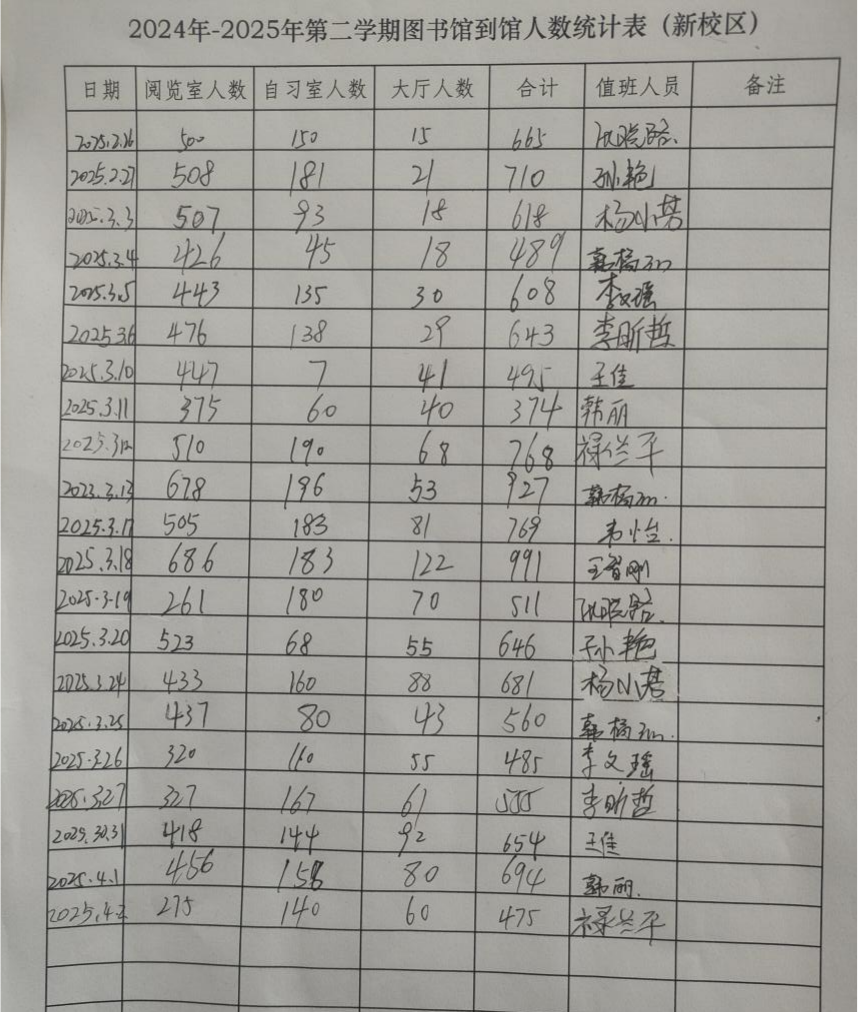 2024年-2025年第二学期图书馆到馆人数统计表（新校区）
日期 阅览室人数 自习室人数 大厅人数 合计 值班人员 备注
2025.2.26 500 150 15 665
2025.2.27 508 181 21 710 孙艳
2025.3.3 507 93 18 618 杨小茜
2025.3.4 426 45 18 489 韩杨
2025.3.5 443 135 30 608 李文瑶
2025.3.6 476 138 29 643 李昕哲
2025.3.10 447 7 41 495 王佳
2025.3.11 375 60 40 374 韩丽
2025.3.12 510 190 68 768 禄兰平
2023.3.13 678 196 53 927 韩杨
2025.3.17 505 183 81 769 韦怡
2025.3.18 686 183 122 991 王智刚
2025.3.19 261 180 70 511
2025.3.20 523 68 55 646 孙艳
2025.3.24 433 160 88 681 杨小茜
2025.3.25 437 80 43 560 韩杨
2025.3.26 320 110 55 485 李文瑶
2025.3.27 327 167 61 555 李昕哲
2025.30.31 418 144 92 654 王佳
2025.4.1 456 158 80 694 韩丽.
2025.4.2 275 140 60 475 禄兰平